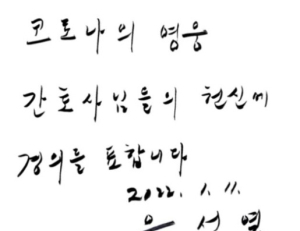 코로나의 영웅
간호사님들의 헌신에
경의를 표합니다
2022. 1. 11.